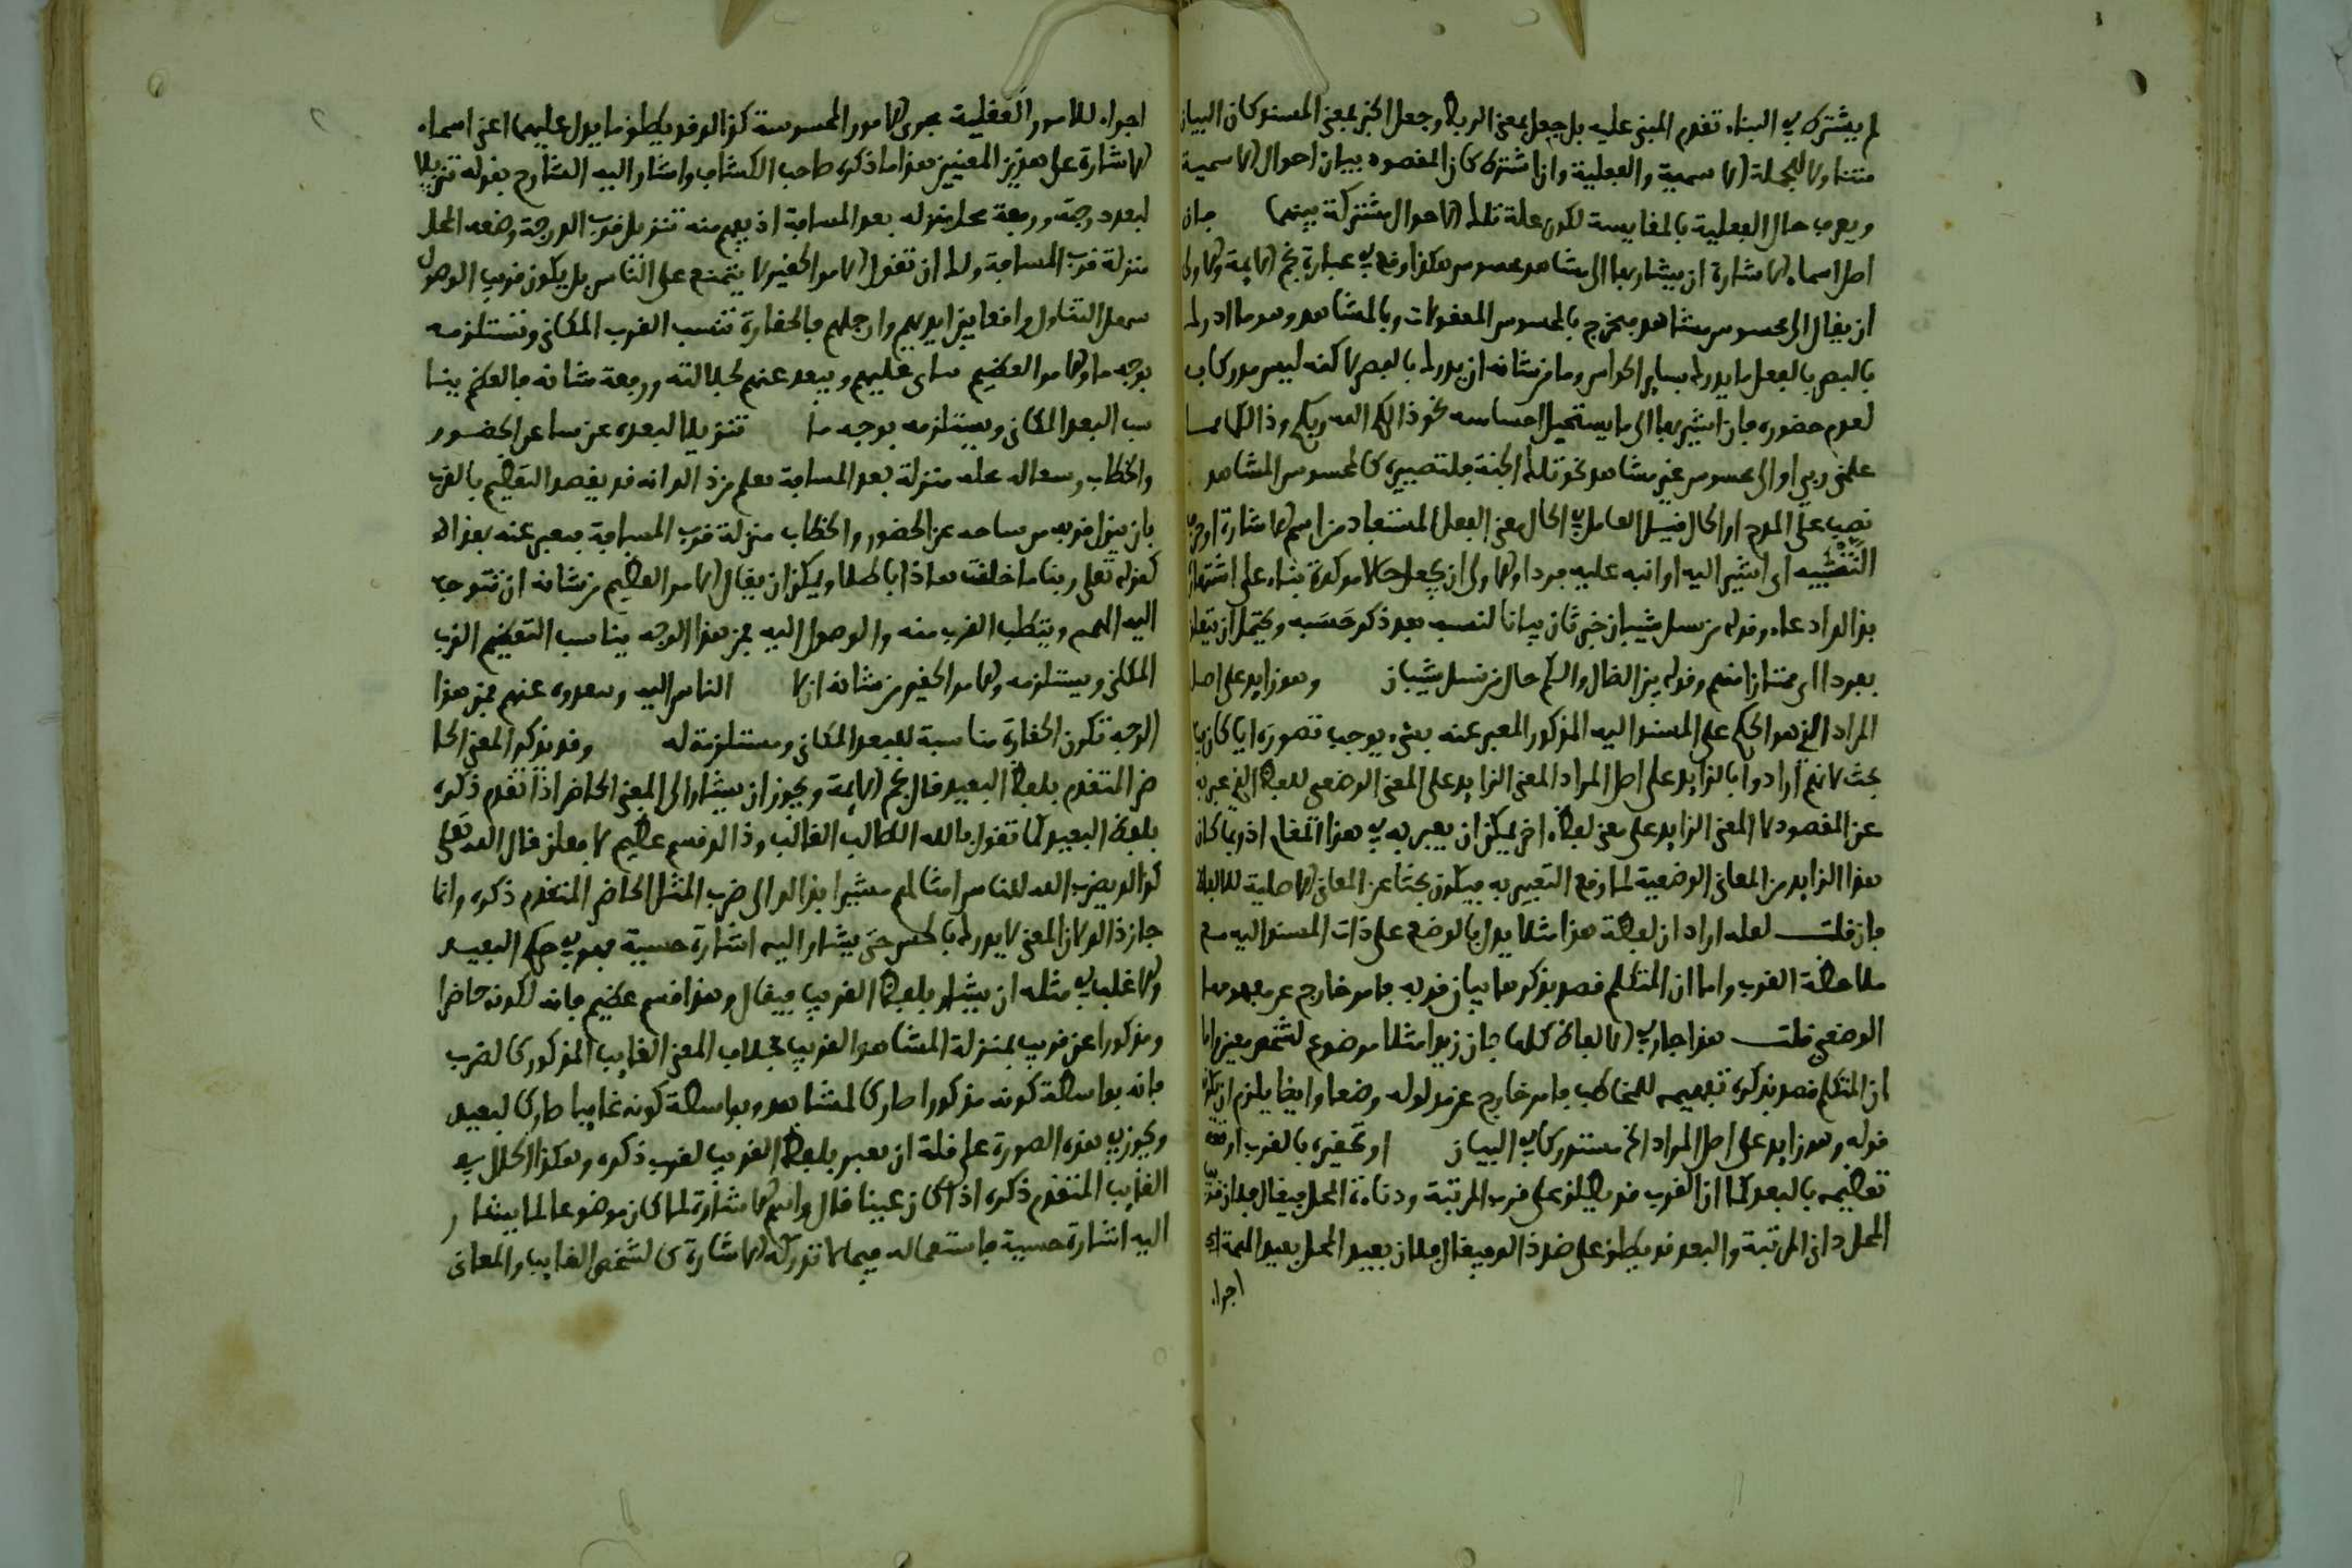 لم يشترط في البناء تقدم المبني عليه بل جعل بمعنى الربط وجعل الخبر بمعنى المسند كان البيان
متناولا للجملة الاسمية والفعلية وان اشترط كان المقصود بيان احوال الاسمية
ويعرف حال الفعلية بالمقايسة لكون علة تلك الاحوال مشتركة بينهما فان
اصل اسماء الاشارة ان يشار بها الى مشاهد محسوس هكذا وقع في عبارة نجم الايمة والاولى
ان يقال الى محسوس مشاهد فيخرج بالمحسوس المعقولات وبالمشاهد وهو ما ادرك
بالبصر بالفعل ما يدرك بساير الحواس وما من شانه ان يدرك بالبصر لاكنه ليس مدركا به
لعدم حضوره فان اشير بها الى ما يستحيل احساسه نحو ذالكم الله ربكم وذالكما مما
علمني ربي او الى محسوس غير مشاهد نحو تلك الجنة فلتصييره كالمحسوس المشاهد
نصب على المدح او الحال فيل العامل في الحال معنى الفعل المستفاد من اسم الاشارة او حرف
التنبيه اي اشير اليه او انبه عليه فردا والاولى ان يجعل حالا موكدة بناء على اشتهار
بذالك ادعاء وقوله من نسل شيبان خبر ثان بيانا لنسبه بعد ذكر حسبه ويحتمل ان يتعلق
بفردا اي ممتازا منهم وقوله بين الضال والسلم حال من نسل شيبان وهو زايد على اصل
المراد الذي هو الحكم على المسند اليه المذكور المعبر عنه بشيء يوجب تصوره ايا كان فيه
بحث لانهم ارادوا بالزايد على اصل المراد المعنى الزايد على المعنى الوضعي للفظ الذي عبر به
عن المقصود لا المعنى الزايد على معنى لفظ اخر يمكن ان يعبر به في هذا المقام اذ ربما كان
هذا الزايد من المعاني الوضعية لما وقع التعبير به فيكون بحثا عن المعاني الاصلية للالفاظ
فان قلت لعله اراد ان لفظة هذا مثلا يدل بالوضع على ذات المسند اليه مع
ملاحظة القرب واما ان المتكلم قصد بذكرها بيان قربه فامر خارج عن مفهومها
الوضعي قلت هذا جار في الالفاظ كلها فان زيدا مثلا موضوع لشخص معين واما
ان المتكلم قصد بذكره تفهيمه للمخاطب فامر خارج عن مدلوله وضعا وايضا يلزم ان يكون
قوله وهو زايد على اصل المراد الخ مستدركا في البيان او تحقيره بالقرب او
تعظيمه بالبعد كما ان القرب قد يطلق على قرب المرتبة ودناءة المحل فيقال فلان قريب
المحل داني المرتبة والبعد قد يطلق على ضد ذالك فيقال فلان بعيد المحل بعيد الهمة
اجراء
اجراء للامور العقلية مجرى الامور المحسوسة كذالك قد يطلق ما يدل عليهما اعني اسماء
الاشارة على هذين المعنيين هذا ما ذكره صاحب الكشاف واشار اليه الشارح بقوله تنزيلا
لبعد درجته ورفعة محله منزلة بعد المسافة اذ يفهم منه تنزيل قرب الدرجة وضعه المحل
منزلة قرب المسافة ولك ان تقول الامر الحقير لا يمتنع على الناس بل يكون قريب الوصول
سهل التناول واقعا بين ايديهم وارجلهم فالحقارة تناسب القرب المكاني وتستلزمه
بوجه ما والامر العظيم يتابى عليهم ويبعد عنهم لجلالته ورفعة شانه فالعظم ينا
سب البعد المكاني ويستلزمه بوجه ما تنزيلا لبعده عن ساحة الحضور
والخطاب منزلة بعد المسافة فعلم من ذالك انه قد يقصد التعظيم بالقرب
بان ينزل قربه من ساحة عز الحضور والخطاب منزلة قرب المسافة فيعبر عنه بهذا
كقوله تعلى ربنا ما خلقت هاذا باطلا ويمكن ان يقال الامر العظيم من شانه ان تتوجه
اليه الهمم ويتطلب القرب منه والوصول اليه فمن هذا الوجه يناسب التعظيم القرب
المكاني ويستلزمه والامر الحقير من شانه ان لا الناس اليه وبعدوه عنهم فمن هذا
الوجه تكون الحقارة مناسبة للبعد المكاني ومستلزمة له وقد يذكر المعنى الحا
ضر المتقدم بلفظ البعيد قال نجم الايمة ويجوز ان يشار الى المعنى الحاضر اذا تقدم ذكره
بلفظ البعيد كما تقول بالله الطالب الغالب وذالك قسم عظيم لافعلن قال الله تعلى
كذالك يضرب الله للناس امثالهم مشيرا بذالك الى ضرب المثل الحاضر المتقدم ذكره وانما
جاز ذالك لان المعنى لا يدرك بالحس حتى يشار اليه اشارة حسية فهو في حكم البعيد
والاغلب في مثله ان يشار بلفظ القريب فيقال وهذا قسم عظيم فانه لكونه حاضرا
ومذكورا عن قريب بمنزلة المشاهد القريب بخلاف المعنى الغايب المذكور كالضرب
فانه بواسطة كونه مذكورا صار كالمشاهد وبواسطة كونه غايبا صار كالبعيد
ويجوز في هذه الصورة على قلة ان يعبر بلفظ القريب لقرب ذكره وهكذا الحال في
الغايب المتقدم ذكره اذا كان عينا قال واسم الاشارة لما كان موضوعا لما يشار
اليه اشارة حسية فاستعماله فيما لا تدركه الاشارة كالشخص الغايب والمعاني